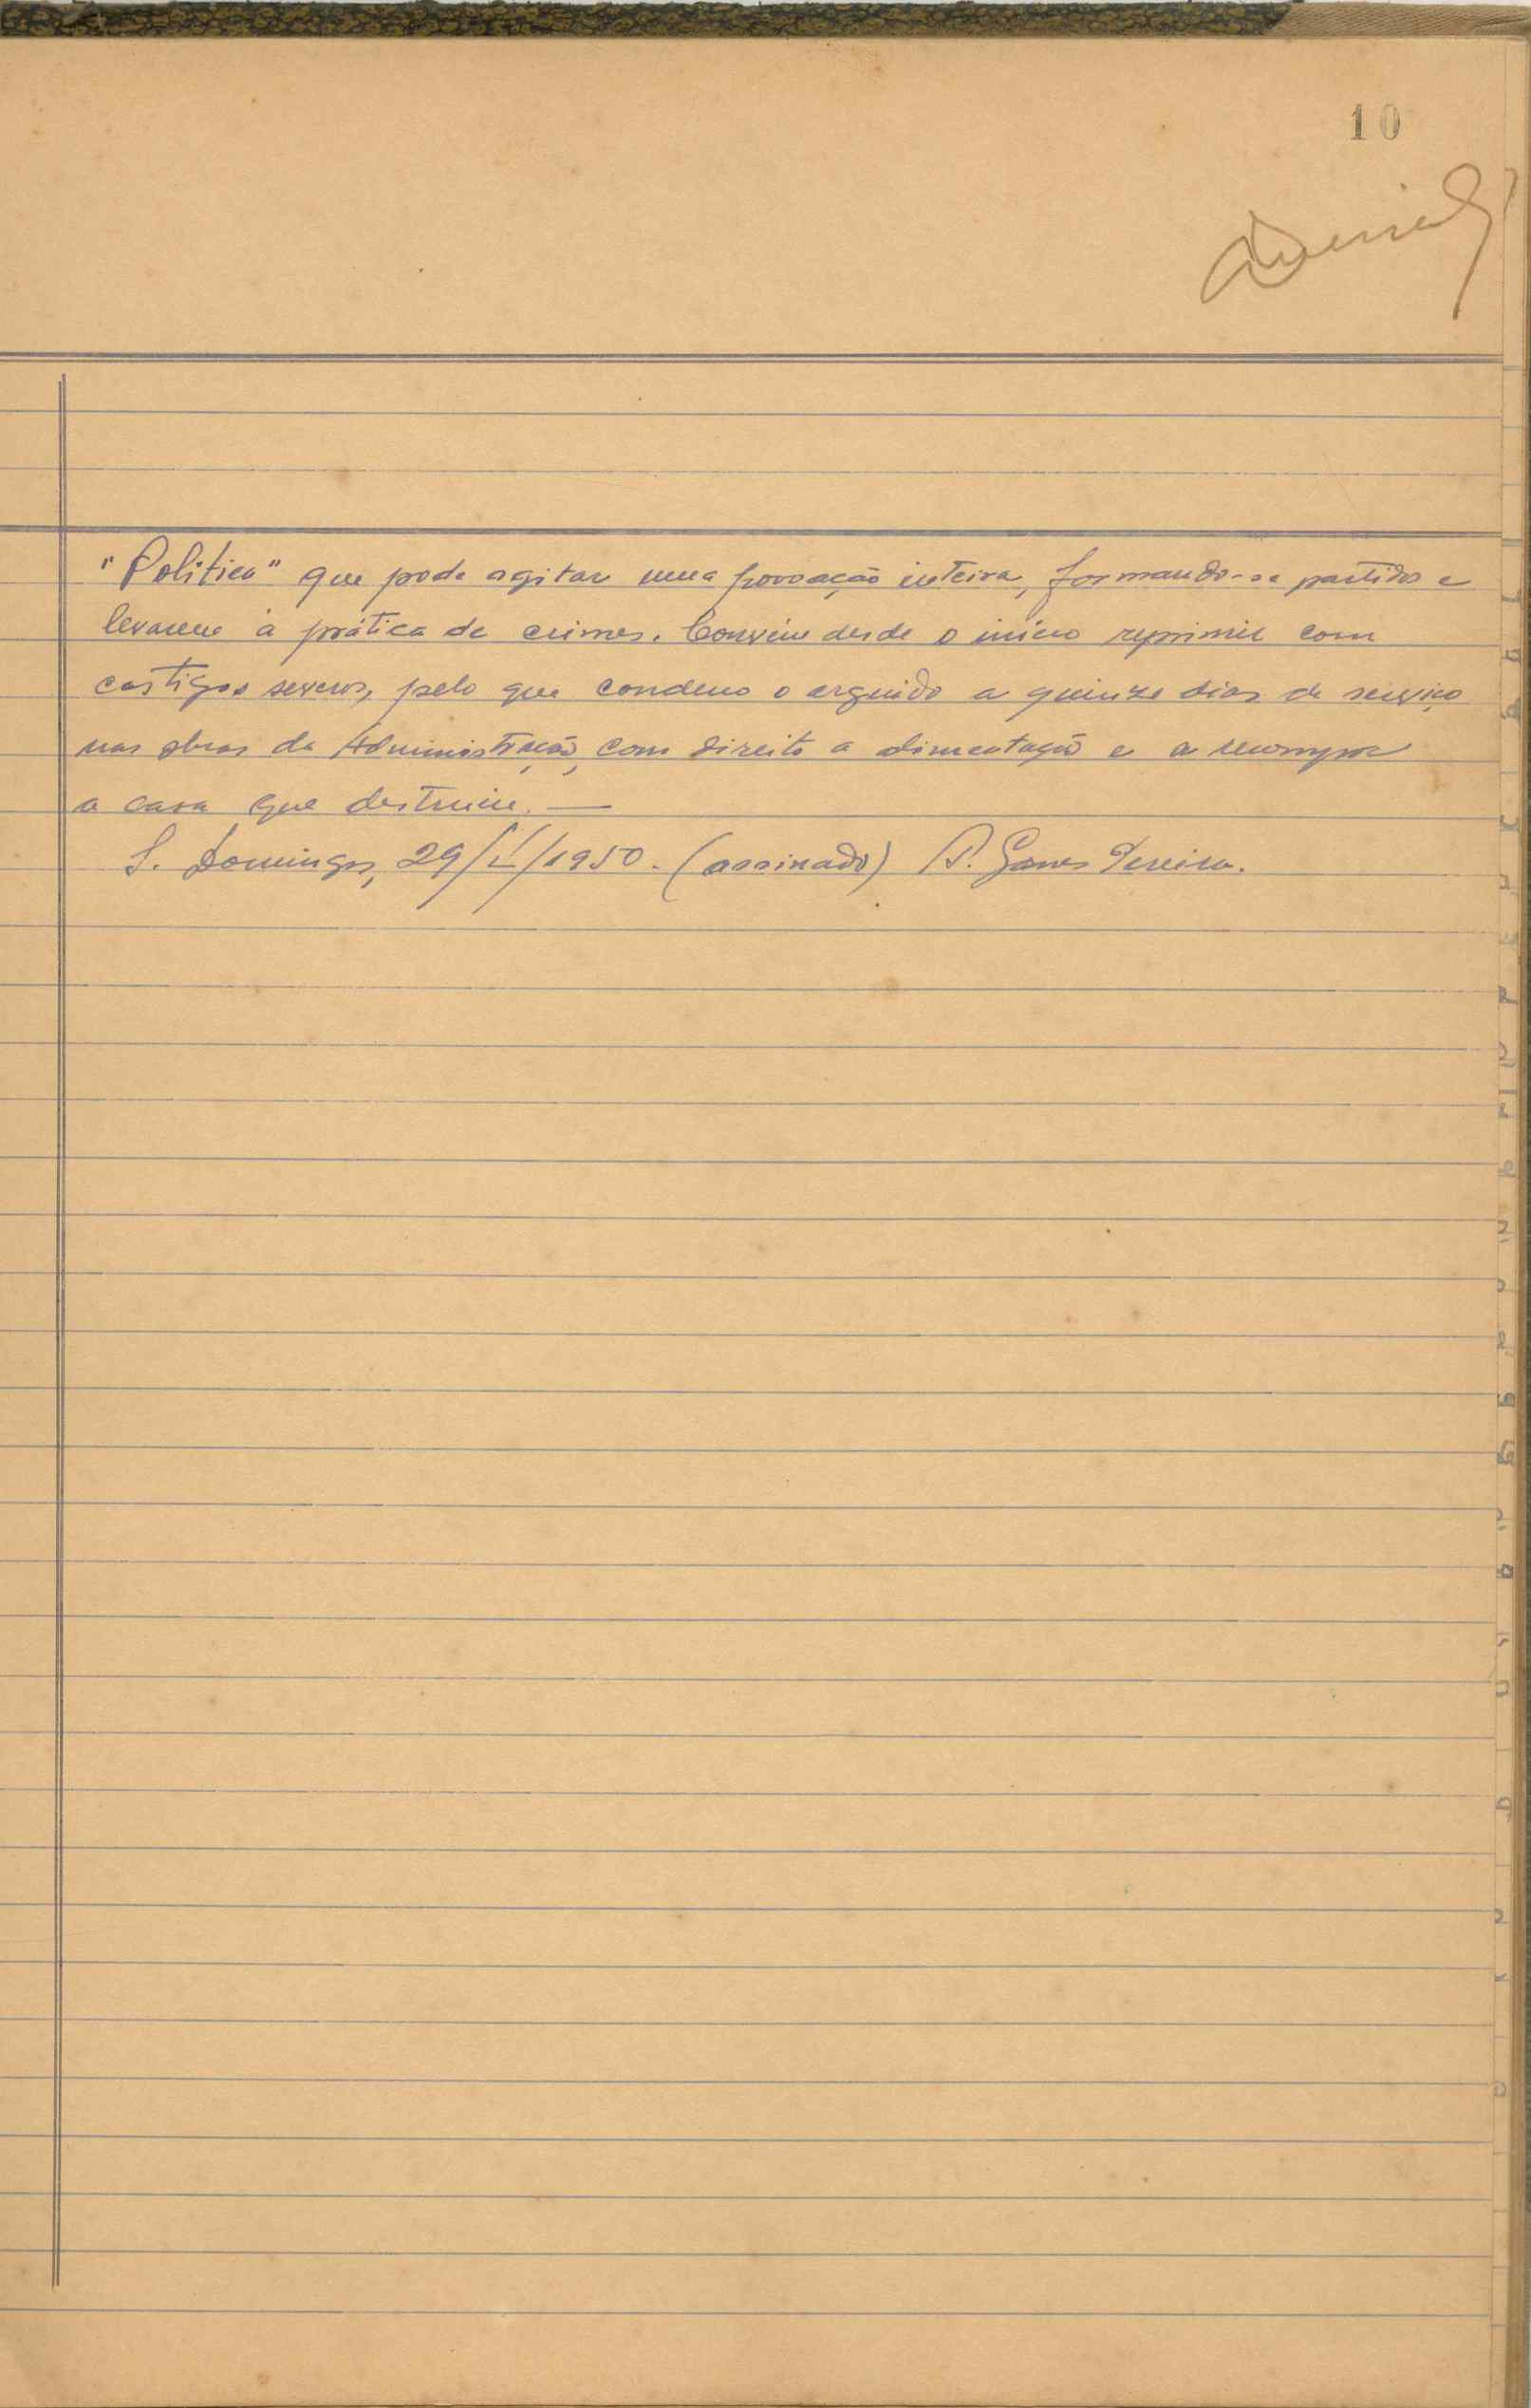 10
"Politica" que pode agitar uma povoação inteira, formando-se partidos e
levarem à prática de crimes. Convém desde o início reprimir com
castigos severos, pelo que condeno o arguido a quinze dias de serviço
nas obras da Administração, com direito a alimentação e a recompor
a casa que destruiu. —
S. Domingos, 29/I/1950. (assinado) A. Gomes Pereira.